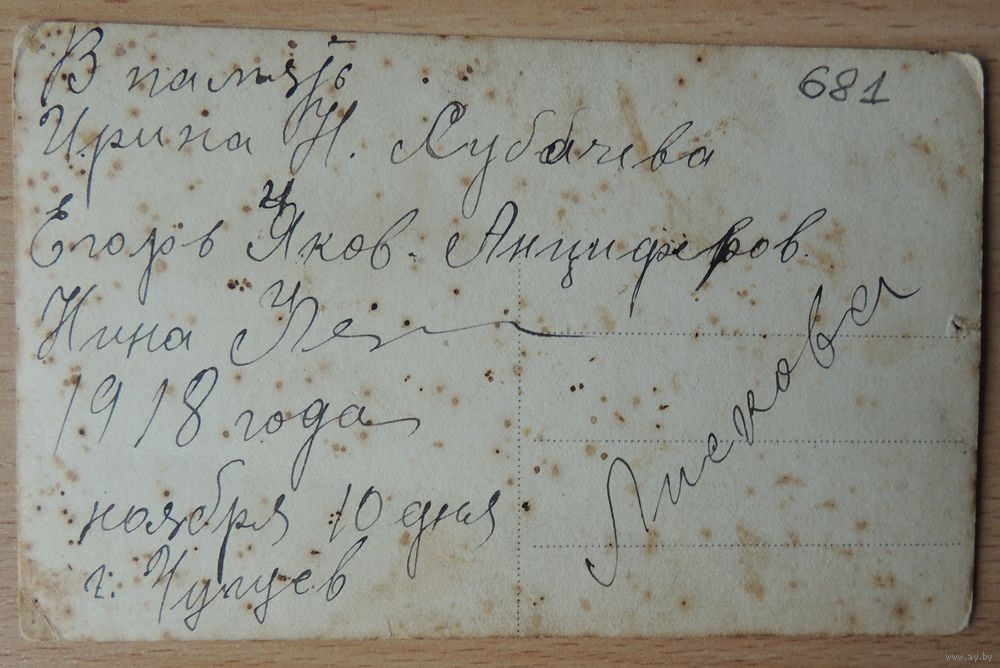 В память
681
Ирина Н. Хубачева
Егоръ Я ков. Анциферов.
и
Нина
и
1918 года
ноября 10 дня
г. Чугуев
Лискова
www.ay.by